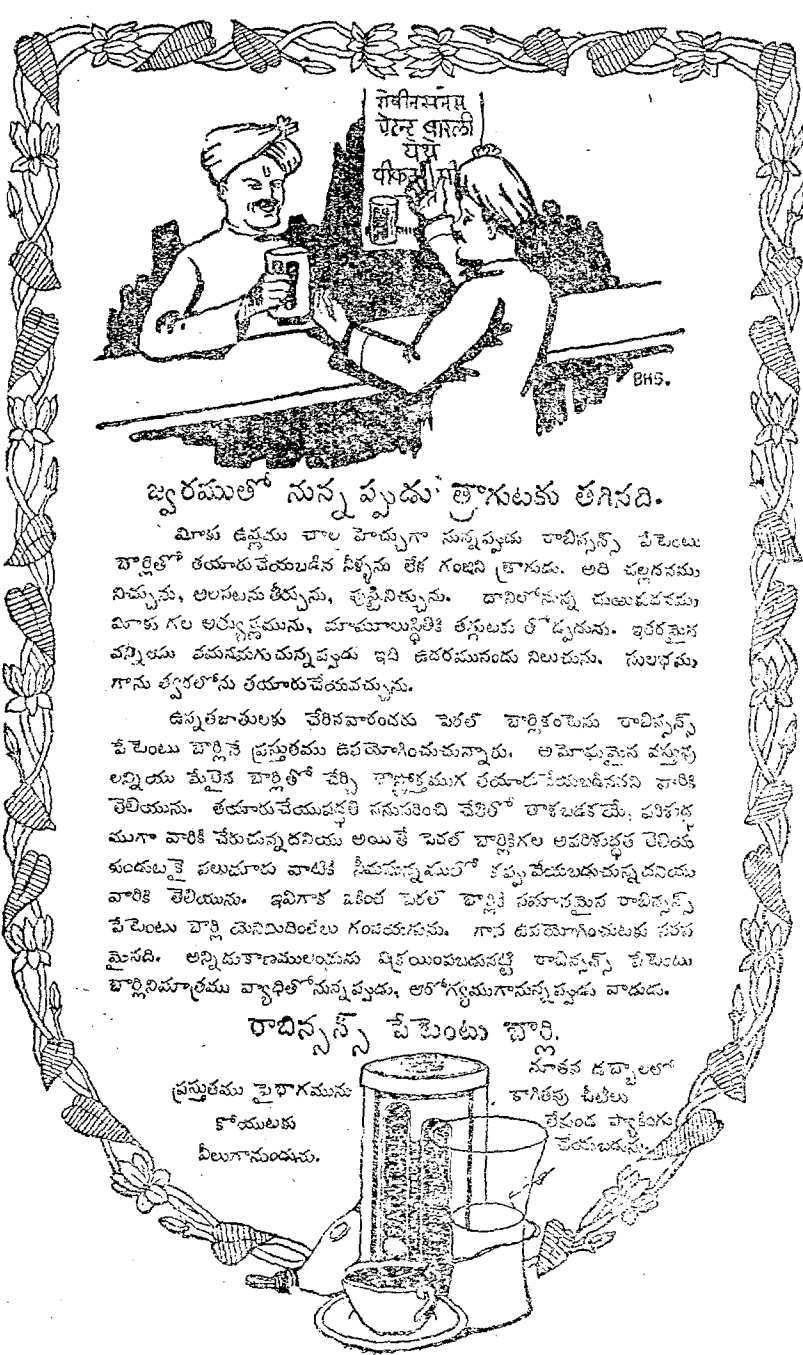 रोबीनसनस
पेटन्ट बारली
येथे
BHS.
జ్వరముతో నున్నప్పుడు త్రాగుటకు తగినది.
మీకు ఉష్ణము చాల హెచ్చుగా నున్నప్పుడు రాబిన్సన్స్ పేటెంటు
బార్లితో తయారుచేయబడిన నీళ్ళను లేక గంజిని త్రాగుడు. అది చల్లదనము
నిచ్చును, ఆలసటను తీర్చును, పుష్టినిచ్చును. దానిలోనున్న
మీకు గల అత్యుష్ణమును, మామూలుస్థితికి తగ్గుటకు తోడ్పడును. ఇతరమైన
వన్నియు వమనమగుచున్నప్పుడు ఇది ఉదరమునందు నిలుచును. సులభము
గాను త్వరలోను తయారుచేయవచ్చును.
ఉన్నతజాతులకు చేరినవారందరు పెరల్ బార్లికంటెను రాబిన్సన్స్
పేటెంటు బార్లినే ప్రస్తుతము ఉపయోగించుచున్నారు. అమోఘమైన వస్తువు
లన్నియు మేలైన బార్లితో చేర్చి శాస్త్రోక్తముగ తయారుచేయబడినదని వారికి
తెలియును. తయారుచేయుపద్ధతి ననుసరించి చేతితో తాకబడకయే, పరిశుద్ధ
ముగా వారికి చేరుచున్నదనియు అయితే పెరల్ బార్లికిగల అపరిశుద్ధత తెలియ
కుండుటకై పలుమారు వాటికి సీమసున్నముతో కప్పువేయబడుచున్నదనియు
వారికి తెలియును. ఇవిగాక ఒకింత పెరల్ బార్లికి సమానమైన రాబిన్సన్స్
పేటెంటు బార్లి యెనిమిదింతలు గంజియగును. గాన ఉపయోగించుటకు సరస
మైనది. అన్నిదుకాణములందును విక్రయింపబడునట్టి రాబిన్సన్స్ పేటెంటు
బార్లినిమాత్రము వ్యాధితోనున్నప్పుడు, ఆరోగ్యముగానున్నప్పుడు వాడుడు.
రాబిన్సన్స్ పేటెంటు బార్లి.
ప్రస్తుతము పైభాగమును
కోయుటకు
వీలుగానుండును.
నూతన డబ్బాలలో
కాగితపు చీటీలు
లేకుండ ప్యాకింగు
చేయబడును.